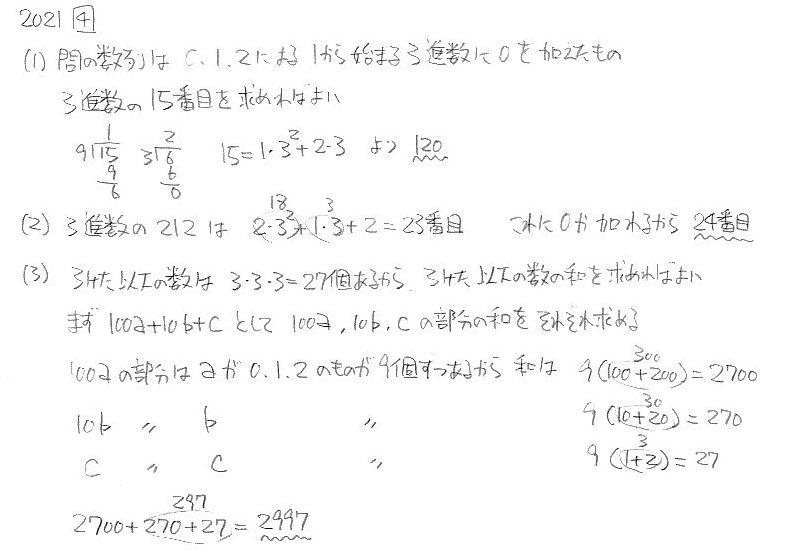 2021 4
(1) 問の数列は 0、1、2による 1から始まる3進数に0を加えたもの
3進数の15番目を求めればよい
1 2
9√15 3√6 15=1・3²+2・3 より 120
9 6
6 0
18 3
(2) 3進数の212は 2・3²+1・3+2=23番目 これに0が加わるから 24番目
(3) 3けた以下の数は 3・3・3=27個あるから 3けた以下の数の和を求めればよい
まず 100a+10b+c として 100a, 10b, c の部分の和をそれぞれ求める
300
100aの部分は aが 0、1、2のものが9個ずつあるから 和は 9(100+200)=2700
30
10b 〃 b 〃 9(10+20)=270
3
c 〃 c 〃 9(1+2)=27
297
2700+270+27=2997